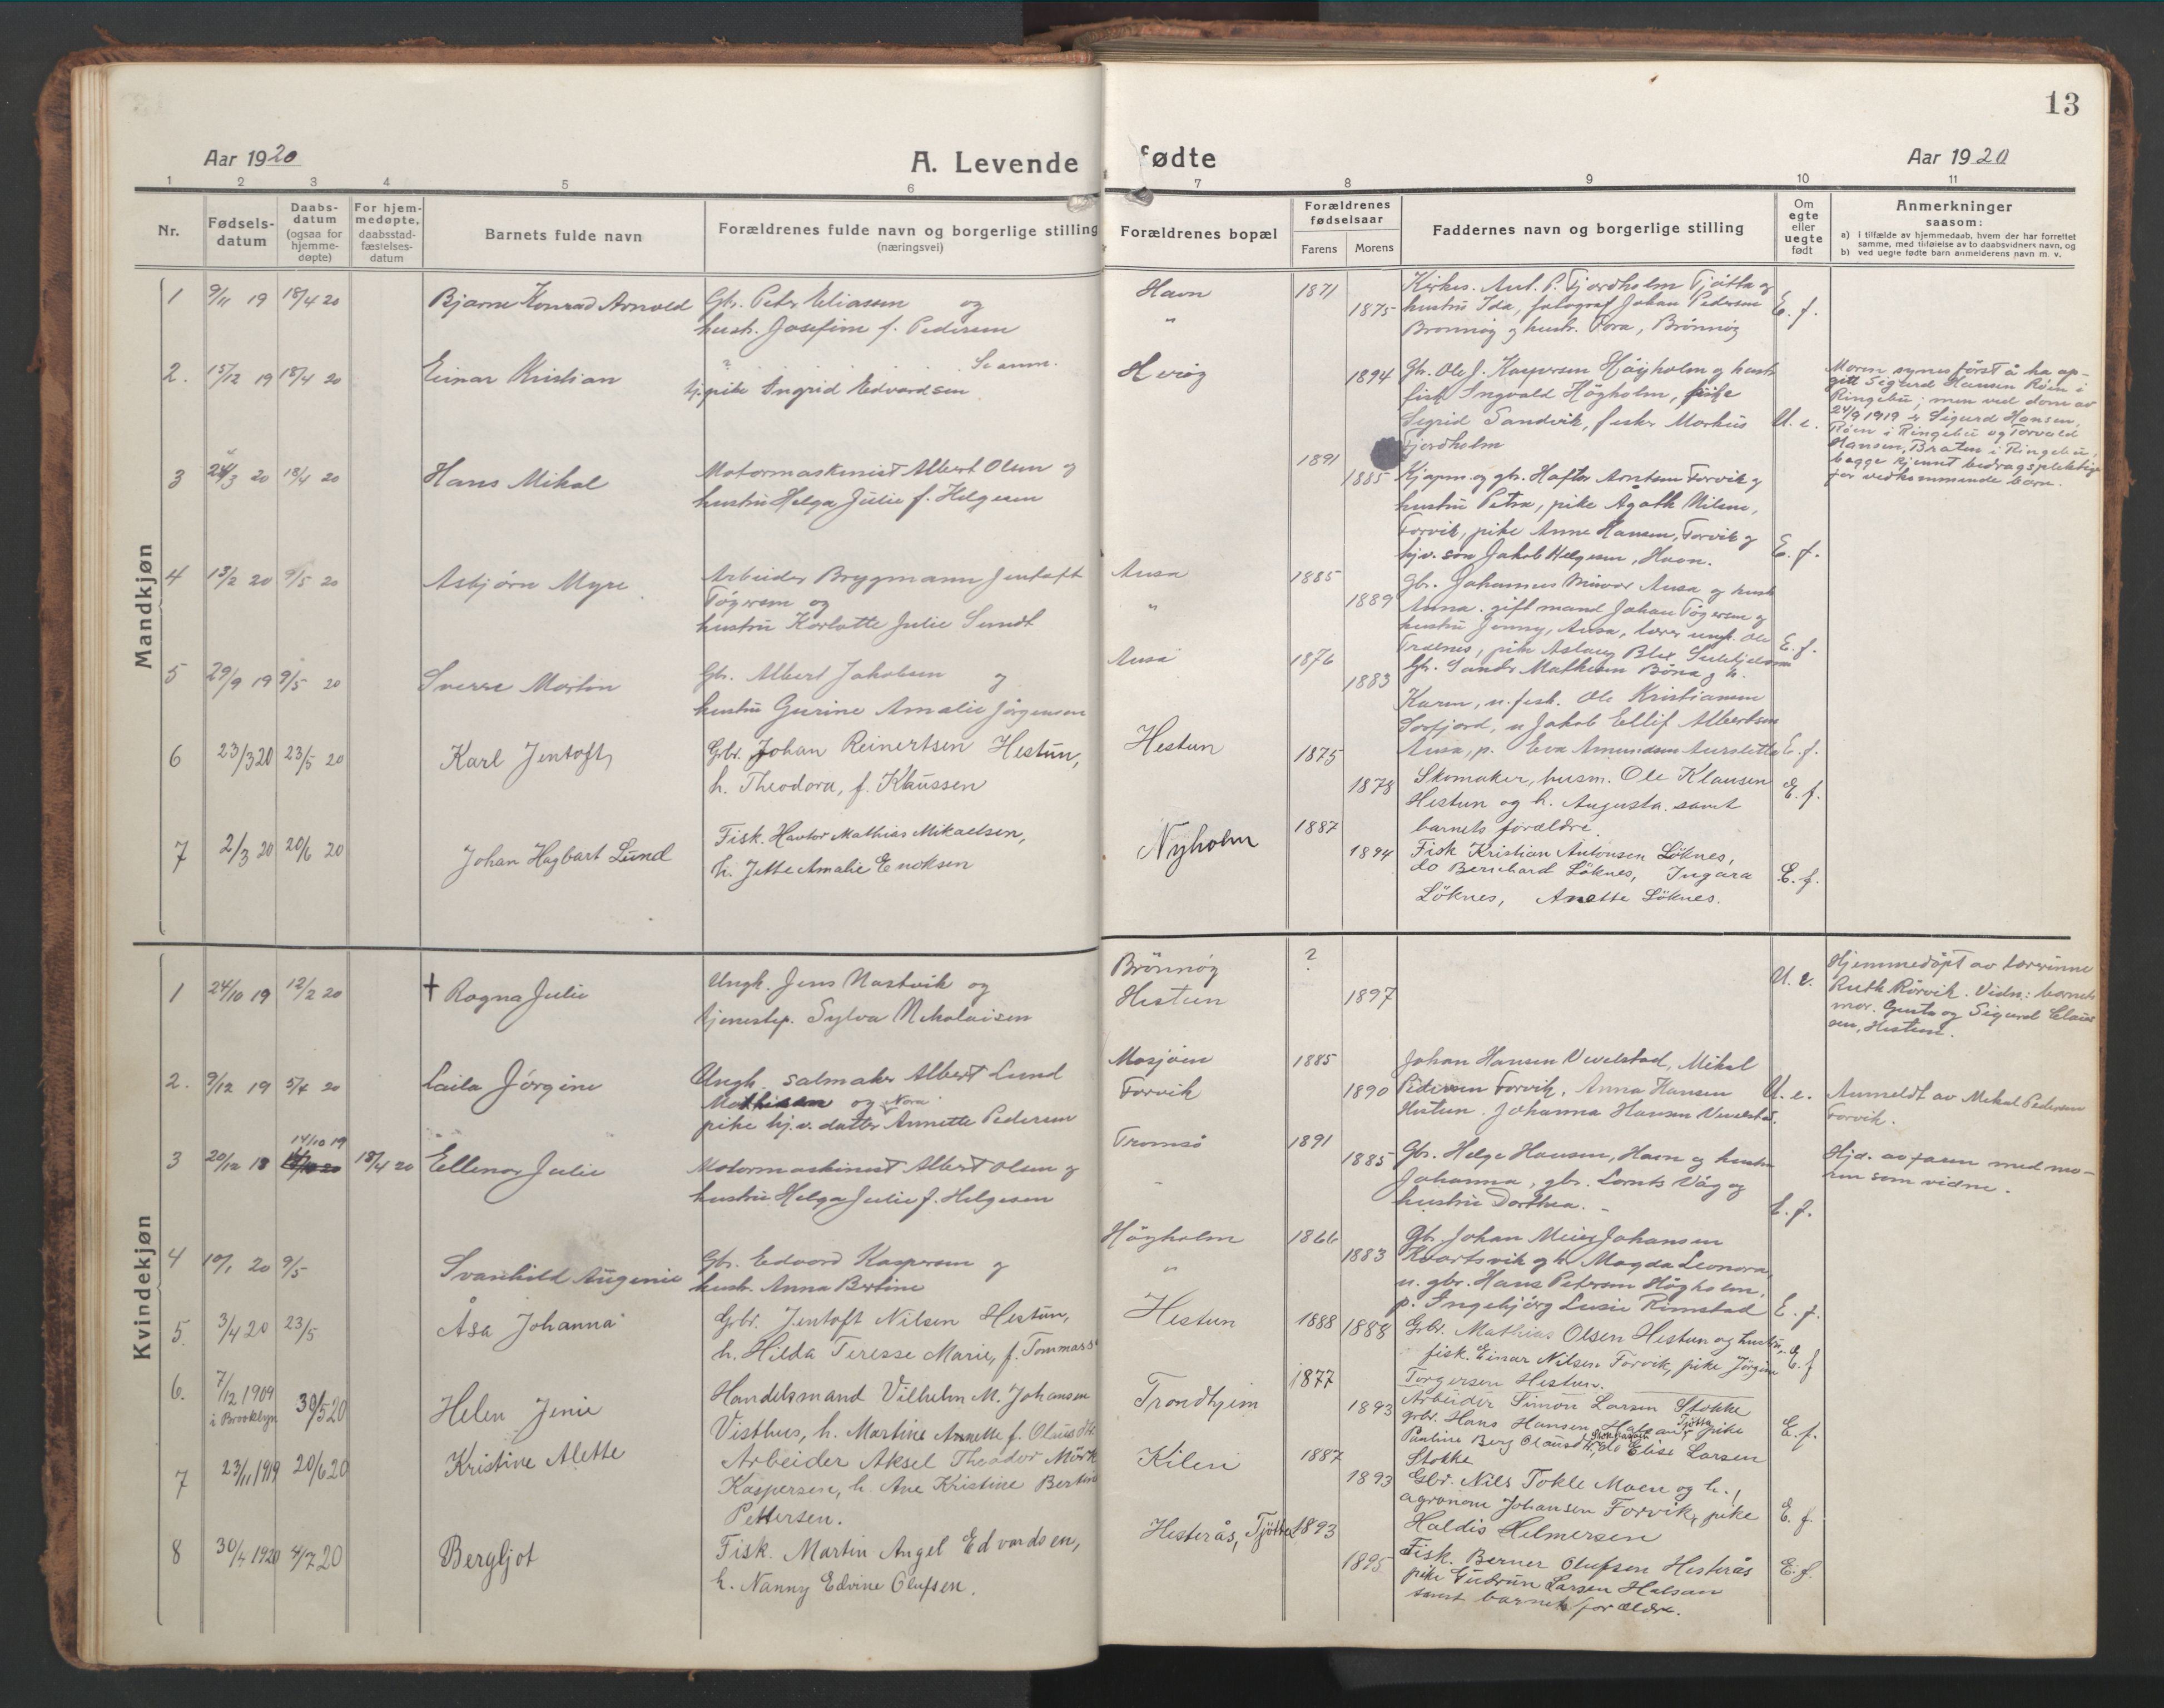 13
Aar 1920
A. Levende fødte
Aar 1920
1 2 3 4 5 6 7 8 9 10 11
Nr.
Fødsels-
datum
Daabs-
datum
(ogsaa for
hjemme-
døpte)
For hjem-
medøpte,
daabsstad-
fæstelses-
datum
Barnets fulde navn
Forældrenes fulde navn og borgerlige stilling
(næringsvei)
Forældrenes bopæl
Forældrenes
fødselsaar
Farens
Morens
Faddernes navn og borgerlige stilling
Om
egte
eller
uegte
født
Anmerkninger
saasom:
a) i tilfælde av hjemmedaab, hvem der har forrettet
samme, med tilføielse av to daabsvidners navn, og
b) ved uegte fødte barn anmelderens navn m. v.
Mandkjøn
1
9/11 19
18/4 20
Bjarne Konrad Arnold
Gbr. Peter Eliassen og
hustr. Josefine f. Pedersen
Havn
"
1871
1875
Kirkes. Ant. P. Fjordholm Tjötta og
hustru Ida, fotograf Johan Pedersen
Brønnøy og hustr. Tora, Brönnöy
E. f.
2.
15/12 19
18/4 20
Einar Kristian
?
tj. pike Ingrid Edvardsen
Heröy
1894
Gbr. Ole J. Kaspersen Höyholm og hustr.
fisk. Ingvald Höyholm, pike
Sigrid Sandvik, fisker Markus
Fjordholm
U. e.
Moren synes först å ha op-
gitt Sigurd Hansen Röen i
Ringebu; men ved dom av
24/9 1919 er Sigurd Hansen,
Röen i Ringebu og Torvald
Hansen, Bråten i Ringebu,
begge kjennt bidragspliktige
for vedkommende barn.
3
24/3 20
18/4 20
Hans Mikal
Motormaskinist Albert Olsen og
hustru Helga Julie f. Helgesen
1891
1885
Kjøpm. og gbr. Hafter Arntsen Forvik og
hustru Petra, pike Agath Nilsen,
Forvik, pike Anne Hansen, Forvik og
hjv. søn Jakob Helgesen, Havn.
E. f.
4
13/2 20
9/5 20
Asbjørn Myre
Arbeider Brygmann Jentoft
Tögersen og
hustru Karlotte Julie Sundt
Ausa
"
1885
1889
Gbr. Johannes Ausa og hustr.
Anna. gift mand Johan Tögersen og
hustru Jenny, Ausa, lærer ungk. Ole
Trælnes, pike Aslaug Blix
E. f.
5
29/9 19
9/5 20
Sverre Morten
Gbr. Albert Jakobsen og
hustru Gurine Amalie Jörgensen
Ausa
1876
1883
Gbr. Sander Mathisen Böna og h.
Karen, u. fisk. Ole Kristiansen
Sørfjord, u. Jakob Ellif Albertsen
Ausa, p. Eva Amundsen
E. f.
6
23/3 20
23/5 20
Karl Jentoft
Gbr. Johan Reinertsen Hestun,
h. Theodora, f. Klaussen
Hestun
1875
1878
Skomaker, husm. Ole Klausen
Hestun og h. Augusta. samt
barnets forældre.
E. f.
7
2/3 20
20/6 20
Johan Hagbart Lund
Fisk. Havtor Mathias Mikaelsen,
h. Jette Amalie Enoksen
Nyholm
1887
1894
Fisk Kristian Antonsen Löknes,
do Bernhard Löknes, Ingara
Löknes, Anette Löknes.
E. f.
Kvindekjøn
1
24/10 19
12/2 20
† Ragna Julie
Ungk. Jens Nastvik og
tjenestep. Sylva Nikolaisen
Brönnöy
Hestun
?
1897
U. e.
Hjemmedöpt av lærerinne
Ruth Rörvik. Vidn.: barnets
mor. og Sigurd Claus
sen, Hestun.
2.
9/12 19
5/4 20
Laila Jörgine
Ungk. salmaker Albert Lund
Mathisen og Nora
pike hj.v. datter Annette Pedersen
Mosjøen
Forvik
1885
1890
Johan Hansen Vevelstad, Mikal
Pedersen Forvik, Anna Hansen
Hestun. Johanna Hansen Vevelstad.
U. e.
Anmeldt av Mikal Pedersen
Forvik.
3
20/12 18
14/10 19
18/4 20
Ellenor Julie
Motormaskinist Albert Olsen og
hustru Helga Julie f. Helgesen
Tromsö
"
1891
1885
Gbr. Helge Hansen, Havn og hustru
Johanna, gbr. Lornts Våg og
hustru Dorthea.
E. f.
Hjd. av faren med mo-
ren som vidne.
4
10/1 20
9/5
Svanhild Augenie
Gbr. Edvard Kaspersen og
hustr. Anna Bertine
Höyholm
"
1866
1883
Gbr. Johan Meier Johansen
Kvartsvik og h. Magda Leonora,
u. gbr. Hans Petersen Höyholm,
p. Ingebjörg Lusie Rimstad
E. f.
5.
3/4 20
23/5
Åsa Johanna
Gbr. Jentoft Nilsen Hestun,
h. Hilda Teresse Marie, f. Tommass
Hestun
1888
1888
Gbr. Mathias Olsen Hestun og hustru,
fisk. Einar Nilsen Forvik, pike Jörgine
Torgersen Hestun.
E. f
6.
7/12 1909
i Brooklyn
30/5 20
Helen Jenie
Handelsmand Vilhelm M. Johansen
Visthus, h. Martine Annette f. Olausdtr.
Trondhjem
1877
1893
Arbeider Simon Larsen Stokke
gbr. Hans Hansen, Halsan, Tjötta pike
Pauline Berg Olausd. do Elise Larsen
Stokke
E. f.
7
23/11 1919
20/6 20
Kristine Alette
Arbeider Aksel Theodor Mörk
Kaspersen, h. Ane Kristine Bertine
Pettersen.
Kilen
1887
1893
Gbr. Nils Tokle Moen og h.,
agronom Johansen Forvik, pike
Haldis Helmersen
E. f.
8
30/4 1920
4/7 20
Bergljot
Fisk. Martin Angel Edvardsen,
h. Nanny Edvine Olufsen.
Hesterås, Tjötta
1893
1895
Fisk. Berner Olufsen Hesterås
pike Gudrun Larsen Halsan
samt barnets forældre.
E. f.